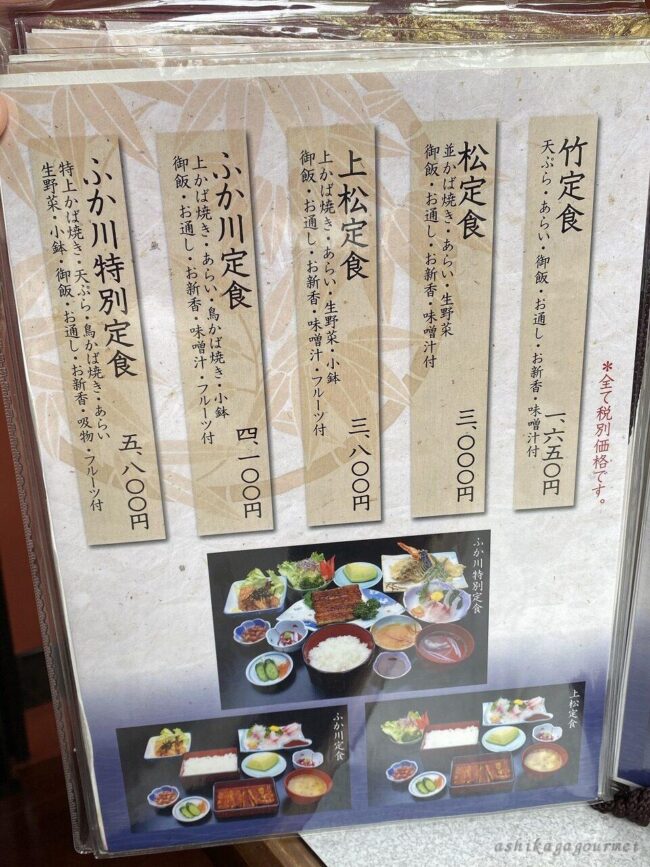 *全て税別価格です。
竹定食
天ぷら・あらい・御飯・お通し・お新香・味噌汁付
一、六五〇円
松定食
並かば焼き・あらい・生野菜
御飯・お通し・お新香・味噌汁付
三、〇〇〇円
上松定食
上かば焼き・あらい・生野菜・小鉢
御飯・お通し・お新香・味噌汁・フルーツ付
三、八〇〇円
ふか川定食
上かば焼き・あらい・鳥かば焼き・小鉢
御飯・お通し・お新香・味噌汁・フルーツ付
四、一〇〇円
ふか川特別定食
特上かば焼き・天ぷら・鳥かば焼き・あらい
生野菜・小鉢・御飯・お通し・お新香・吸物・フルーツ付
五、八〇〇円
ふか川特別定食
上松定食
ふか川定食
ashikagagourmet